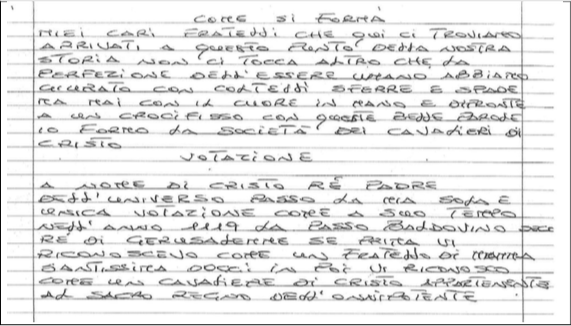 COME SI FORMA
MIEI CARI FRATELLI CHE QUI CI TROVIAMO
ARRIVATI A QUESTO PUNTO DELLA NOSTRA
STORIA NON CI TOCCA ALTRO CHE LA
PERFEZIONE DELL'ESSERE UMANO ABBIAMO
GIURATO CON COLTELLI SFERRE E SPADE
MA MAI CON IL CUORE IN MANO E DIFRONTE
A UN CROCIFISSO CON QUESTE BELLE PAROLE
IO FORMO LA SOCIETÀ DEI CAVALIERI DI
CRISTO
VOTAZIONE
A NOME DI CRISTO RÉ PADRE
DELL'UNIVERSO PASSO LA MIA SOLA E
UNICA VOTAZIONE COME A SUO TEMPO
NELL'ANNO 1119 LA PASSO BALDOVINO
RÉ DI GERUSALEMME SE PRIMA VI
RICONOSCEVO COME UN FRATELLO DI MAMMA
SANTISSIMA DOGGI IN POI VI RICONOSCO
COME UN CAVALIERE DI CRISTO APPARTENENTE
AL SACRO REGNO DELL'ONNIPOTENTE